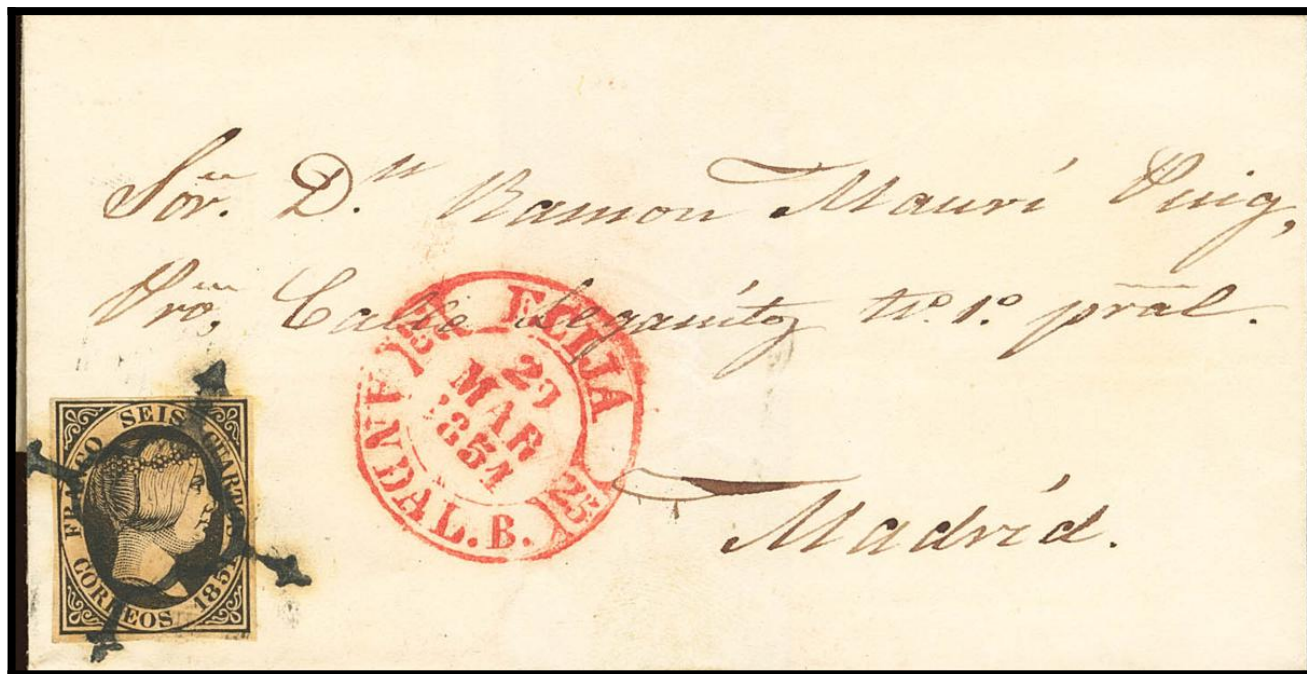 Sor. D.n Ramon Mauri Puig,
Pro, Calle Leganitoz No. 1o. pral.
Madrid.
ECIJA
25
29
MAR
1851
ANDAL. B.
25
FRANCO SEIS CUARTOS
CORREOS 1851